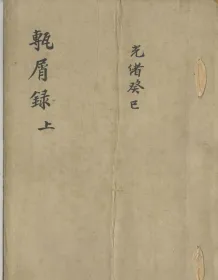 光緒癸巳
甎屑錄 上